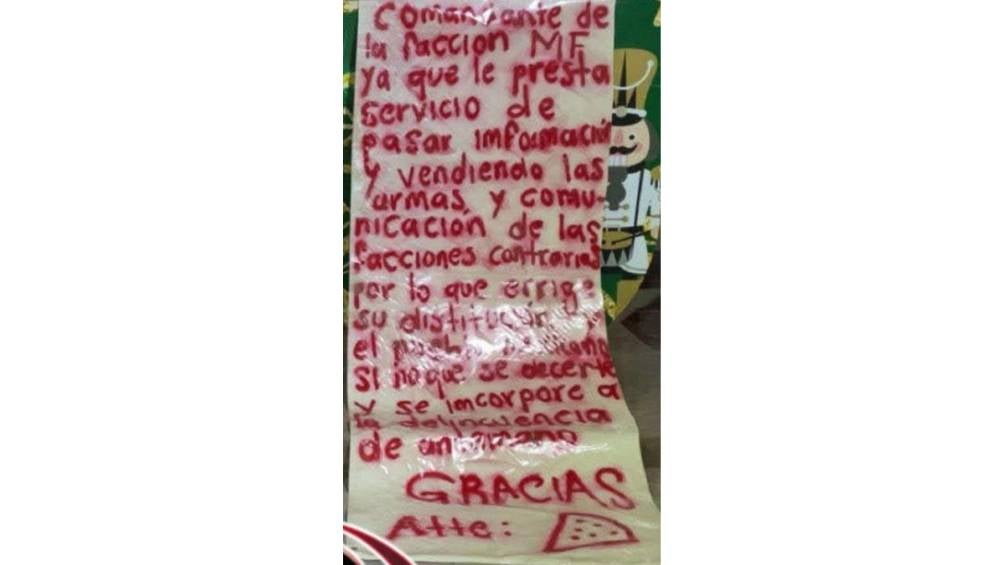 comandante de
la faccion MF
ya que le presta
servicio de
pasar información
y vendiendo las
armas, y comu-
nicación de las
facciones contrarias
por lo que errige
su distitución
el pueblo
si no que se decerte
y se imcorpore a
la delincuencia
de
GRACIAS
Atte: